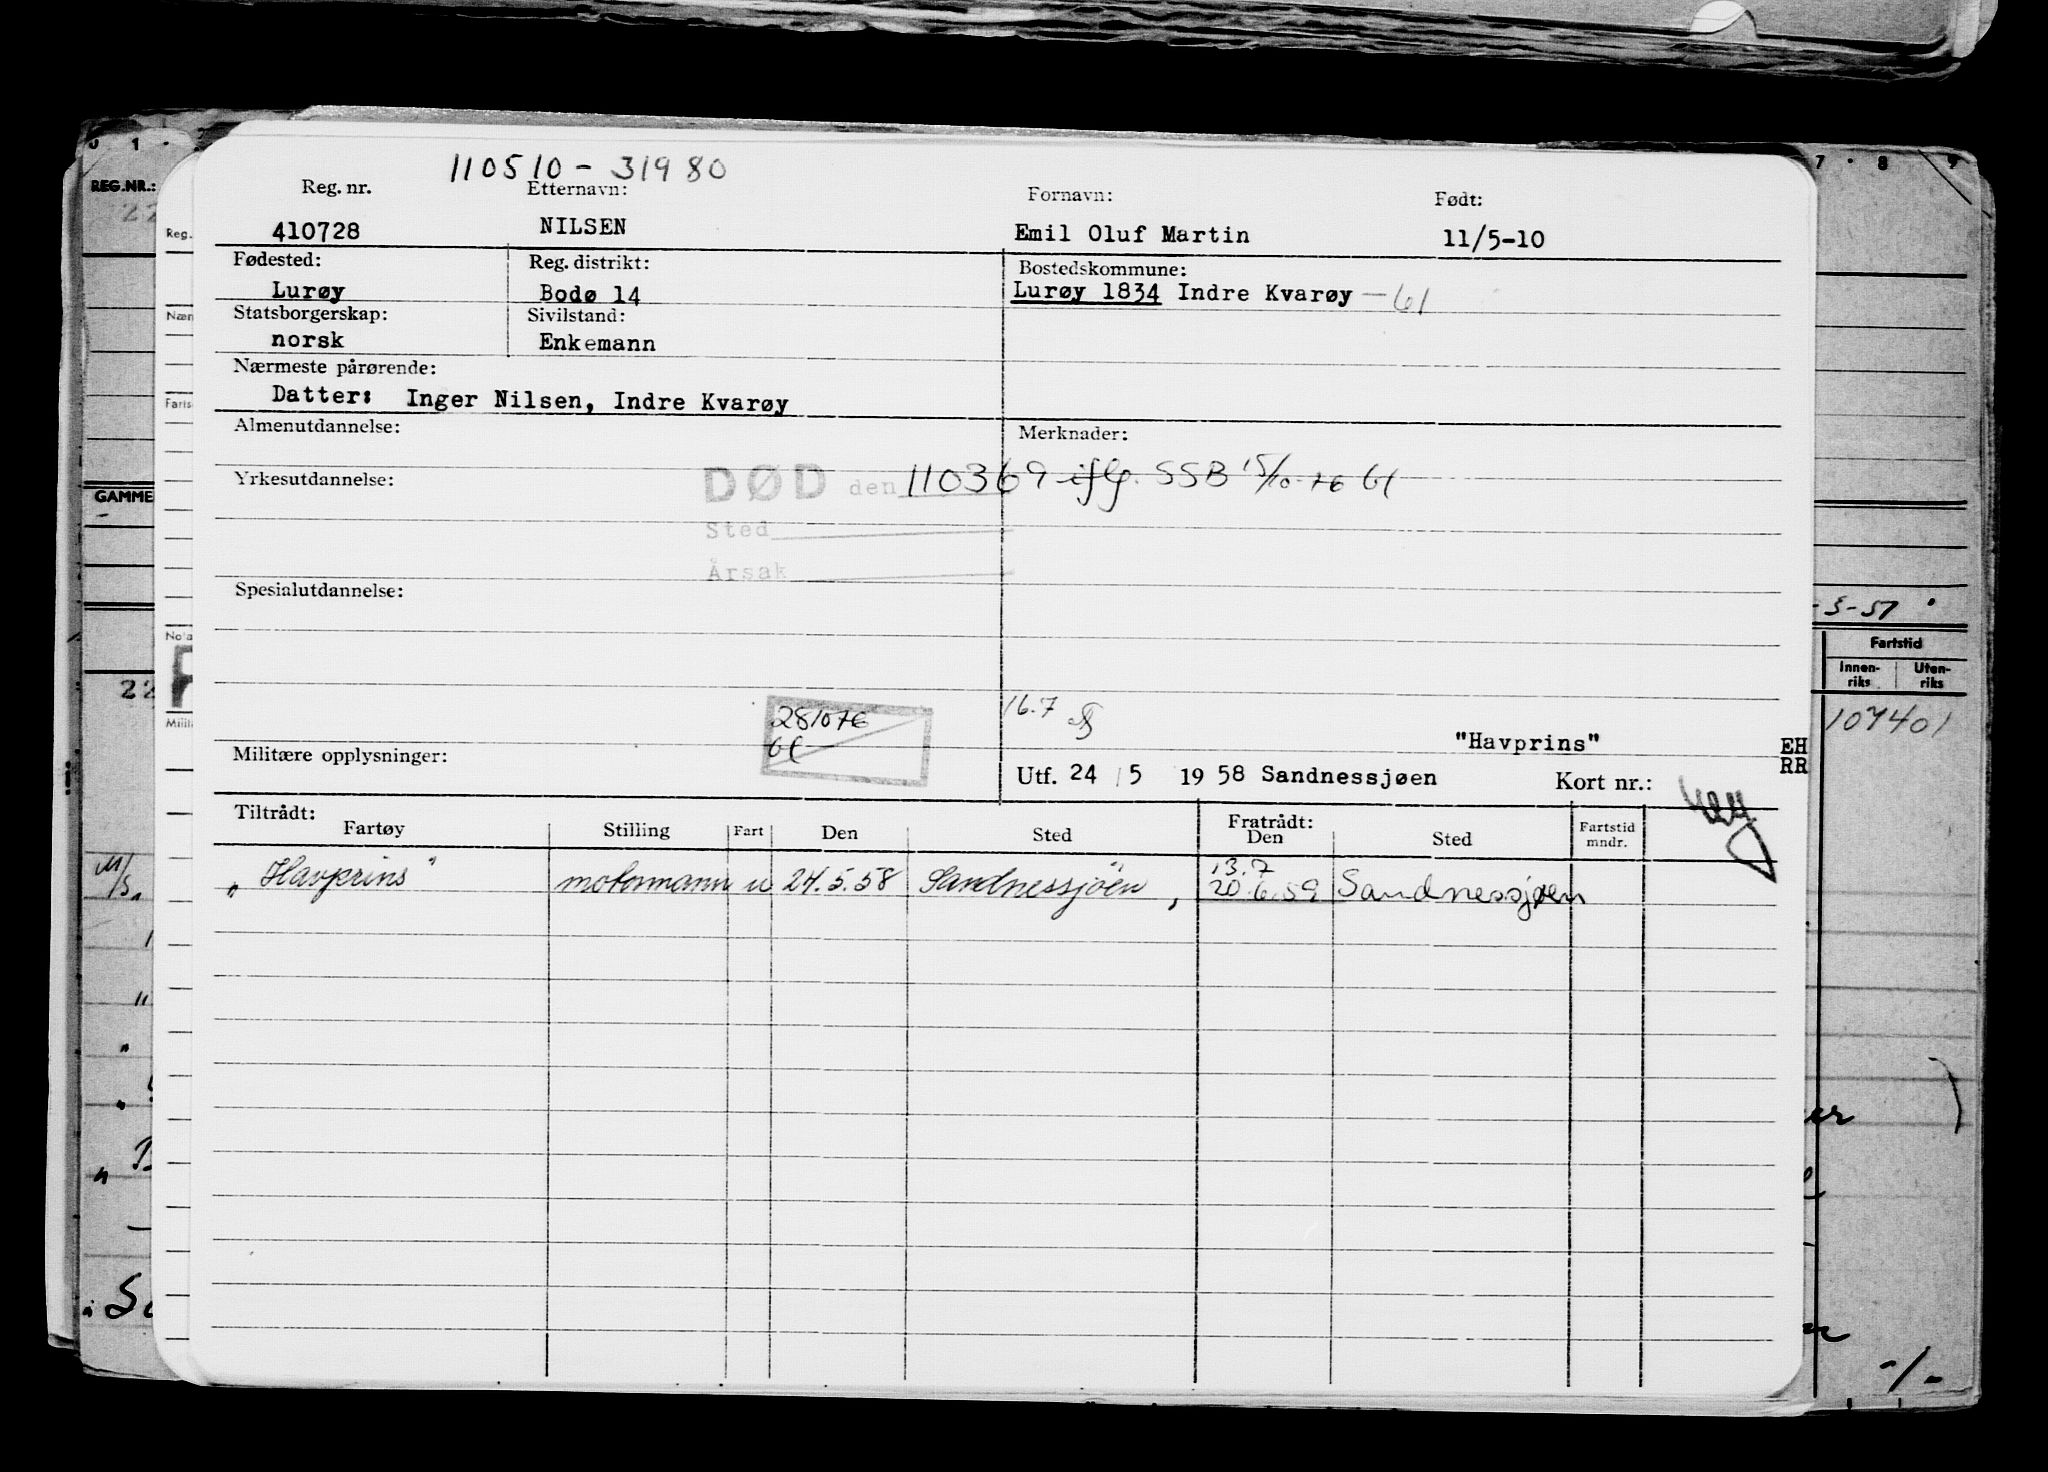 110510-31980
Reg. nr. Etternavn: Fornavn: Født:
410728 NILSEN Emil Oluf Martin 11/5-10
Fødested: Reg. distrikt: Bostedskommune:
Lurøy Bodø 14 Lurøy 1834 Indre Kvarøy -61
Statsborgerskap: Sivilstand:
norsk Enkemann
Nærmeste pårørende:
Datter: Inger Nilsen, Indre Kvarøy
Almenutdannelse: Merknader:
Yrkesutdannelse: DØD den 110369 iflg. SSB 15/10-76
Sted
Årsak
Spesialutdannelse:
16.7
281076
"Havprins" EH
RR
Militære opplysninger: Utf. 24 / 5 19 58 Sandnessjøen Kort nr.:
Tiltrådt: Fratrådt:
Fartøy Stilling Fart Den Sted Den Sted Fartstid
mndr.
13.7
"Havprins" motormann u 24.5.58 Sandnessjöen, 20.6.59 Sandnessjøen
0 1
REG.NR.:
22
Reg.
Farts
GAMME
22
Milit
M/S
7 8 9
-3-57
Fartstid
Innen-
riks
Uten-
riks
107401
-/-